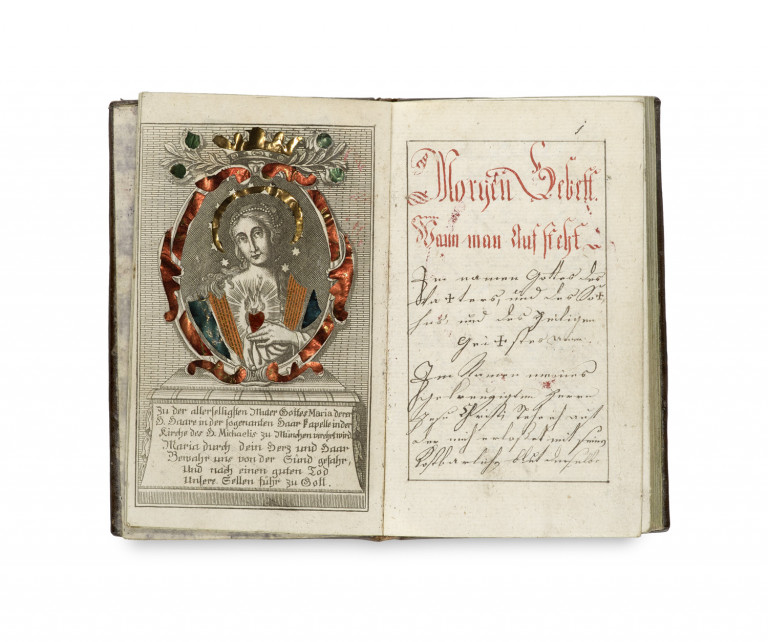 Zu der allerselligsten Muter Gottes Maria deren
H. Haare in der sogenanten Haar Kapelle in der
Kirche des H. Michaelis zu München verehrt wird
Maria durch dein Herz und Haar
Bewahr uns von der Sünd gefahr,
Und nach einen guten Tod
Unsere Sellen führ zu Gott.
1
Morgen Gebett.
Wann man Auf steht
Im namen Gottes des
Va✝ters, und des So✝
hns, und des Heiligen
Gei✝stes Amen.
Im Namen meines
gekreuzigten Herrn
Jesu Christi stehe ich auf
der mich erlöset mit seinem
Kostbarlichen blut derselbe